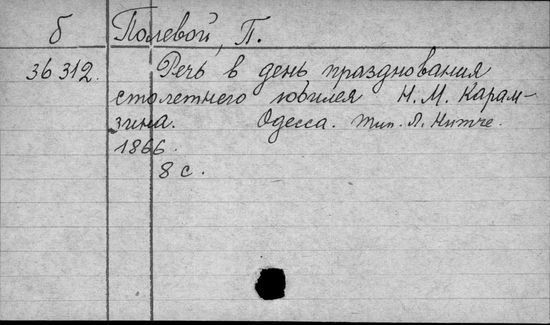 б Полевой, П.
36312. Речь в день празднования
столетнего юбилея Н. М. Карам-
зина. Одесса. тип. Л. Нитче.
1866.
8 с.